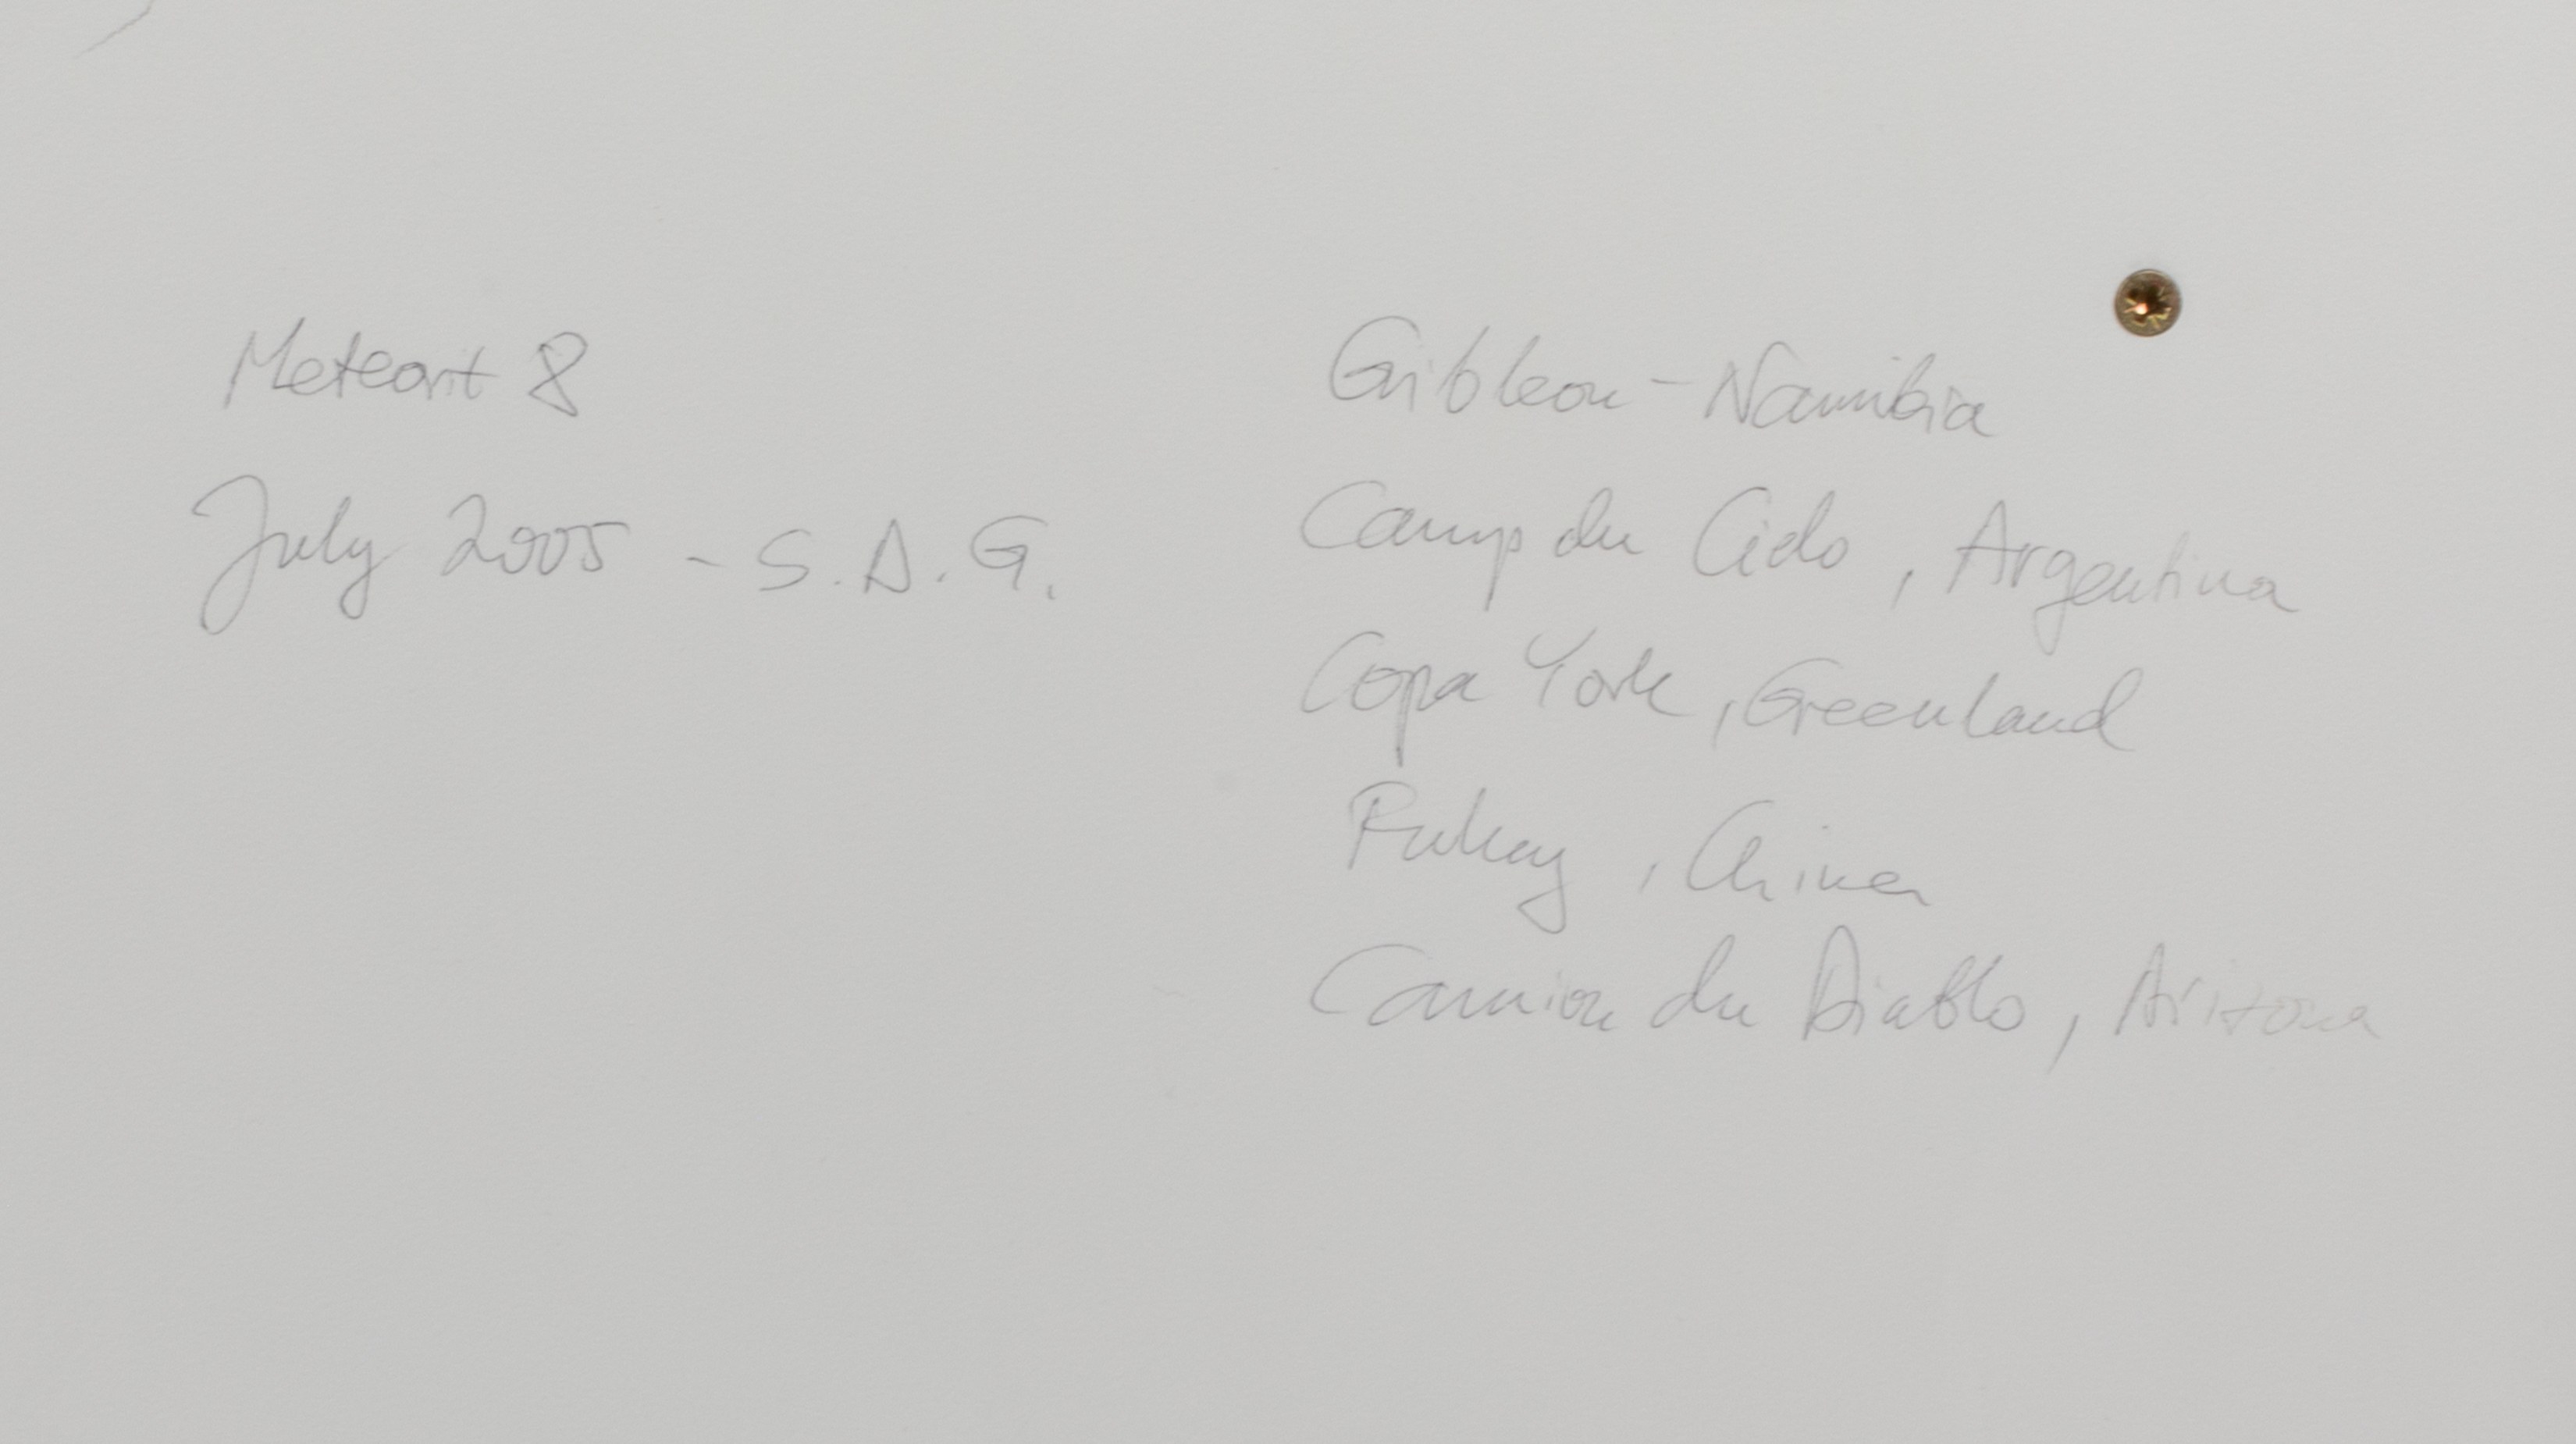 Meteorit 8
July 2005 - S.D.G.
Gribleon - Namibia
Camp du Cielo, Argentina
Copa York, Greenland
, China
Camion du Diablo, Arizona